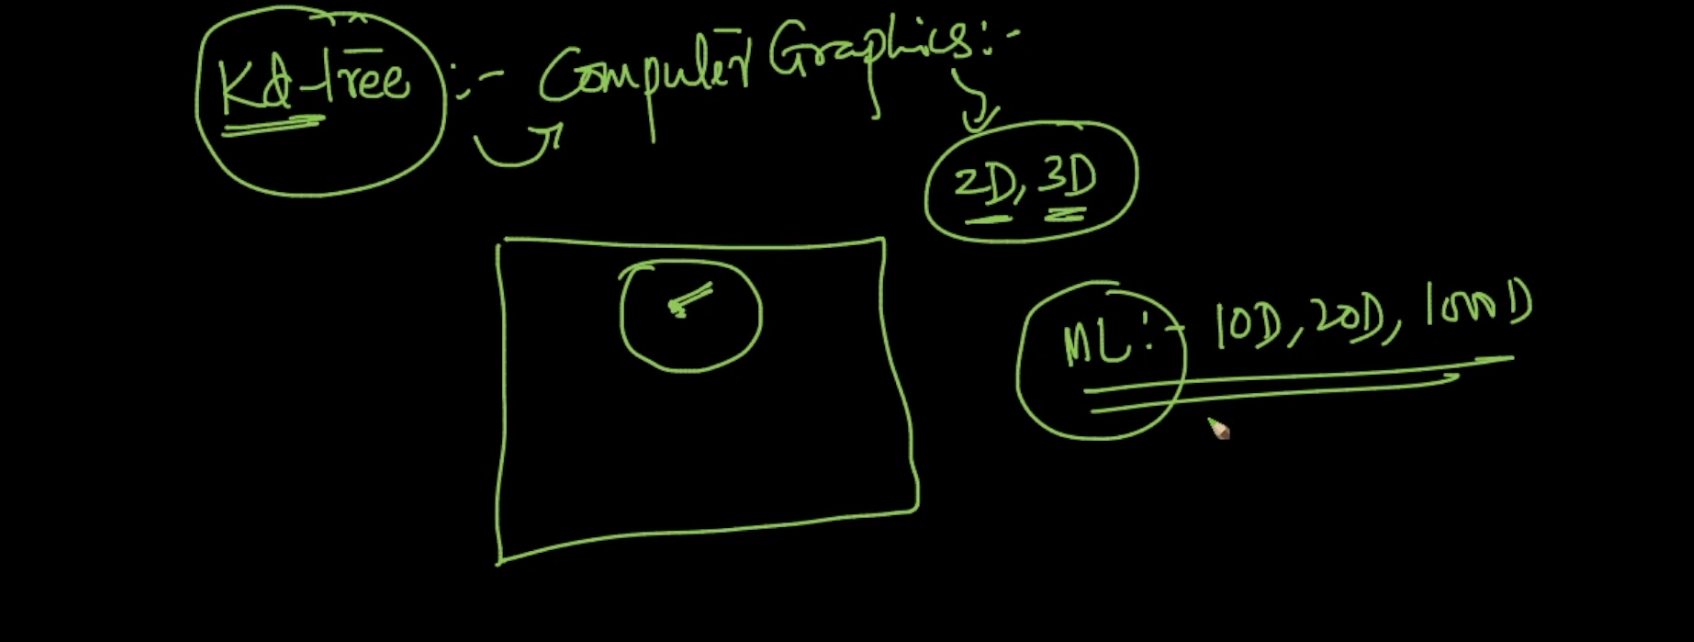 Kd-Tree :- Computer Graphics :-
2D, 3D
ML :- 10D, 20D, 1000D